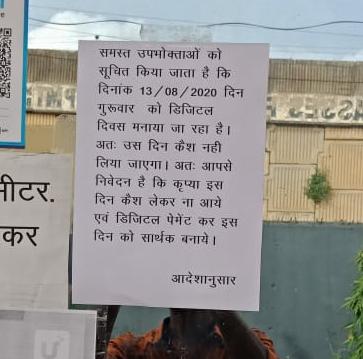 समस्त उपभोक्ताओं को
सूचित किया जाता है कि
दिनांक 13/08/2020 दिन
गुरूवार को डिजिटल
दिवस मनाया जा रहा है।
अतः उस दिन कैश नही
लिया जाएगा। अतः आपसे
निवेदन है कि कृप्या इस
दिन कैश लेकर ना आये
एवं डिजिटल पेमेंट कर इस
दिन को सार्थक बनाये।
आदेशानुसार
मीटर.
कर